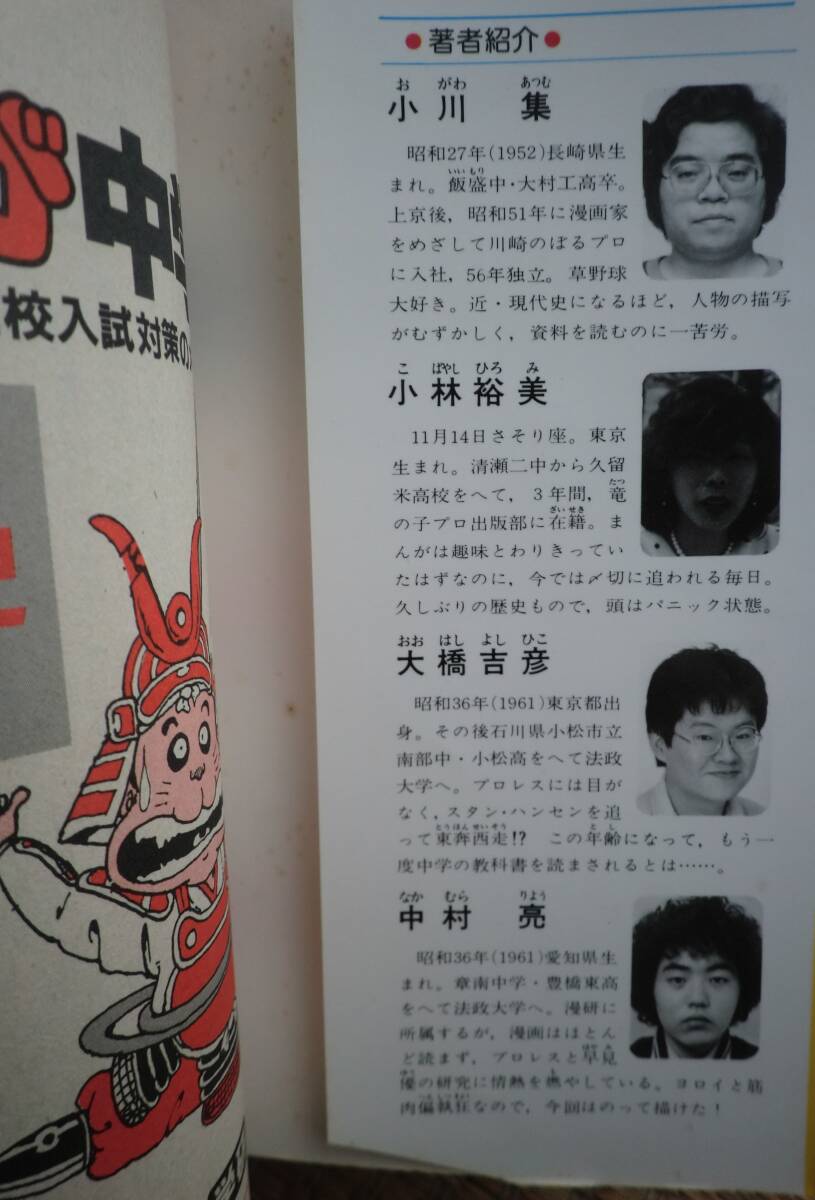 が中
校入試対策の
●著者紹介●
お がわ あつむ
小川 集
昭和27年(1952)長崎県生
いいもり
まれ。飯盛中・大村工高卒。
上京後，昭和51年に漫画家
をめざして川崎のぼるプロ
に入社，56年独立。草野球
大好き。近・現代史になるほど，人物の描写
がむずかしく，資料を読むのに一苦労。
こ ばやし ひろ み
小林裕美
11月14日さそり座。東京
生まれ。清瀬二中から久留
たつ
米高校をへて，3年間，竜
ざいせき
の子プロ出版部に在籍。ま
んがは趣味とわりきってい
たはずなのに，今では〆切に追われる毎日。
久しぶりの歴史もので，頭はパニック状態。
おお はし よし ひこ
大橋吉彦
昭和36年(1961)東京都出
身。その後石川県小松市立
南部中・小松高をへて法政
大学へ。プロレスには目が
なく，スタン・ハンセンを追
とうほんせいそう とし
って東奔西走!? この年齢になって，もう一
度中学の教科書を読まされるとは……。
なか むら りょう
中村 亮
昭和36年(1961)愛知県生
まれ。章南中学・豊橋東高
をへて法政大学へ。漫研に
所属するが，漫画はほとん
はやみ
ど読まず，プロレスと早見
ゆう も
優の研究に情熱を燃やしている。ヨロイと筋
肉偏執狂なので，今回はのって描けた！